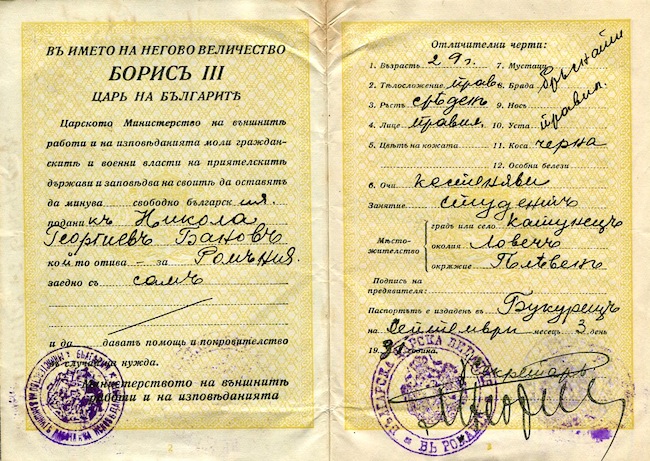 ВЪ ИМЕТО НА НЕГОВО ВЕЛИЧЕСТВО
БОРИСЪ III
ЦАРЬ НА БЪЛГАРИТѢ
Царското Министерство на външнитѣ
работи и на изповѣданията моли граждан-
скитѣ и военни власти на приятелскитѣ
държави и заповѣдва на своитѣ да оставятъ
да минува свободно българск ия
подани къ Никола
Георгиевъ Бановъ
кой то отива - за Ромъния.
заедно съ самъ
и да давать помощь и покровителство
въ случай на нужда.
Министерството на външнитѣ
работи и на изповѣданията
2
Отличителни черти:
1. Възрасть 29 г. 7. Мустаци
2. Тѣлосложение прав. 8. Брада бръснати
3. Ръстъ срѣденъ 9. Носъ
4. Лице правил. 10. Уста правил.
5. Цвѣтъ на кожата 11. Коса черна
12. Особни белези
6. Очи кестеняви
Занятие студентъ
Мѣсто-жителство
градъ или село Катунецъ
околия Ловечъ
окржжие Плѣвенъ
Подпись на
предявителя:
Паспортътъ е издаденъ въ Букурещъ
на Септември месецъ 3 день
19 31 година.
Секретарь
БЪЛГАРСКА ЦАРСКА
ВЪ РОМАНИЯ
3